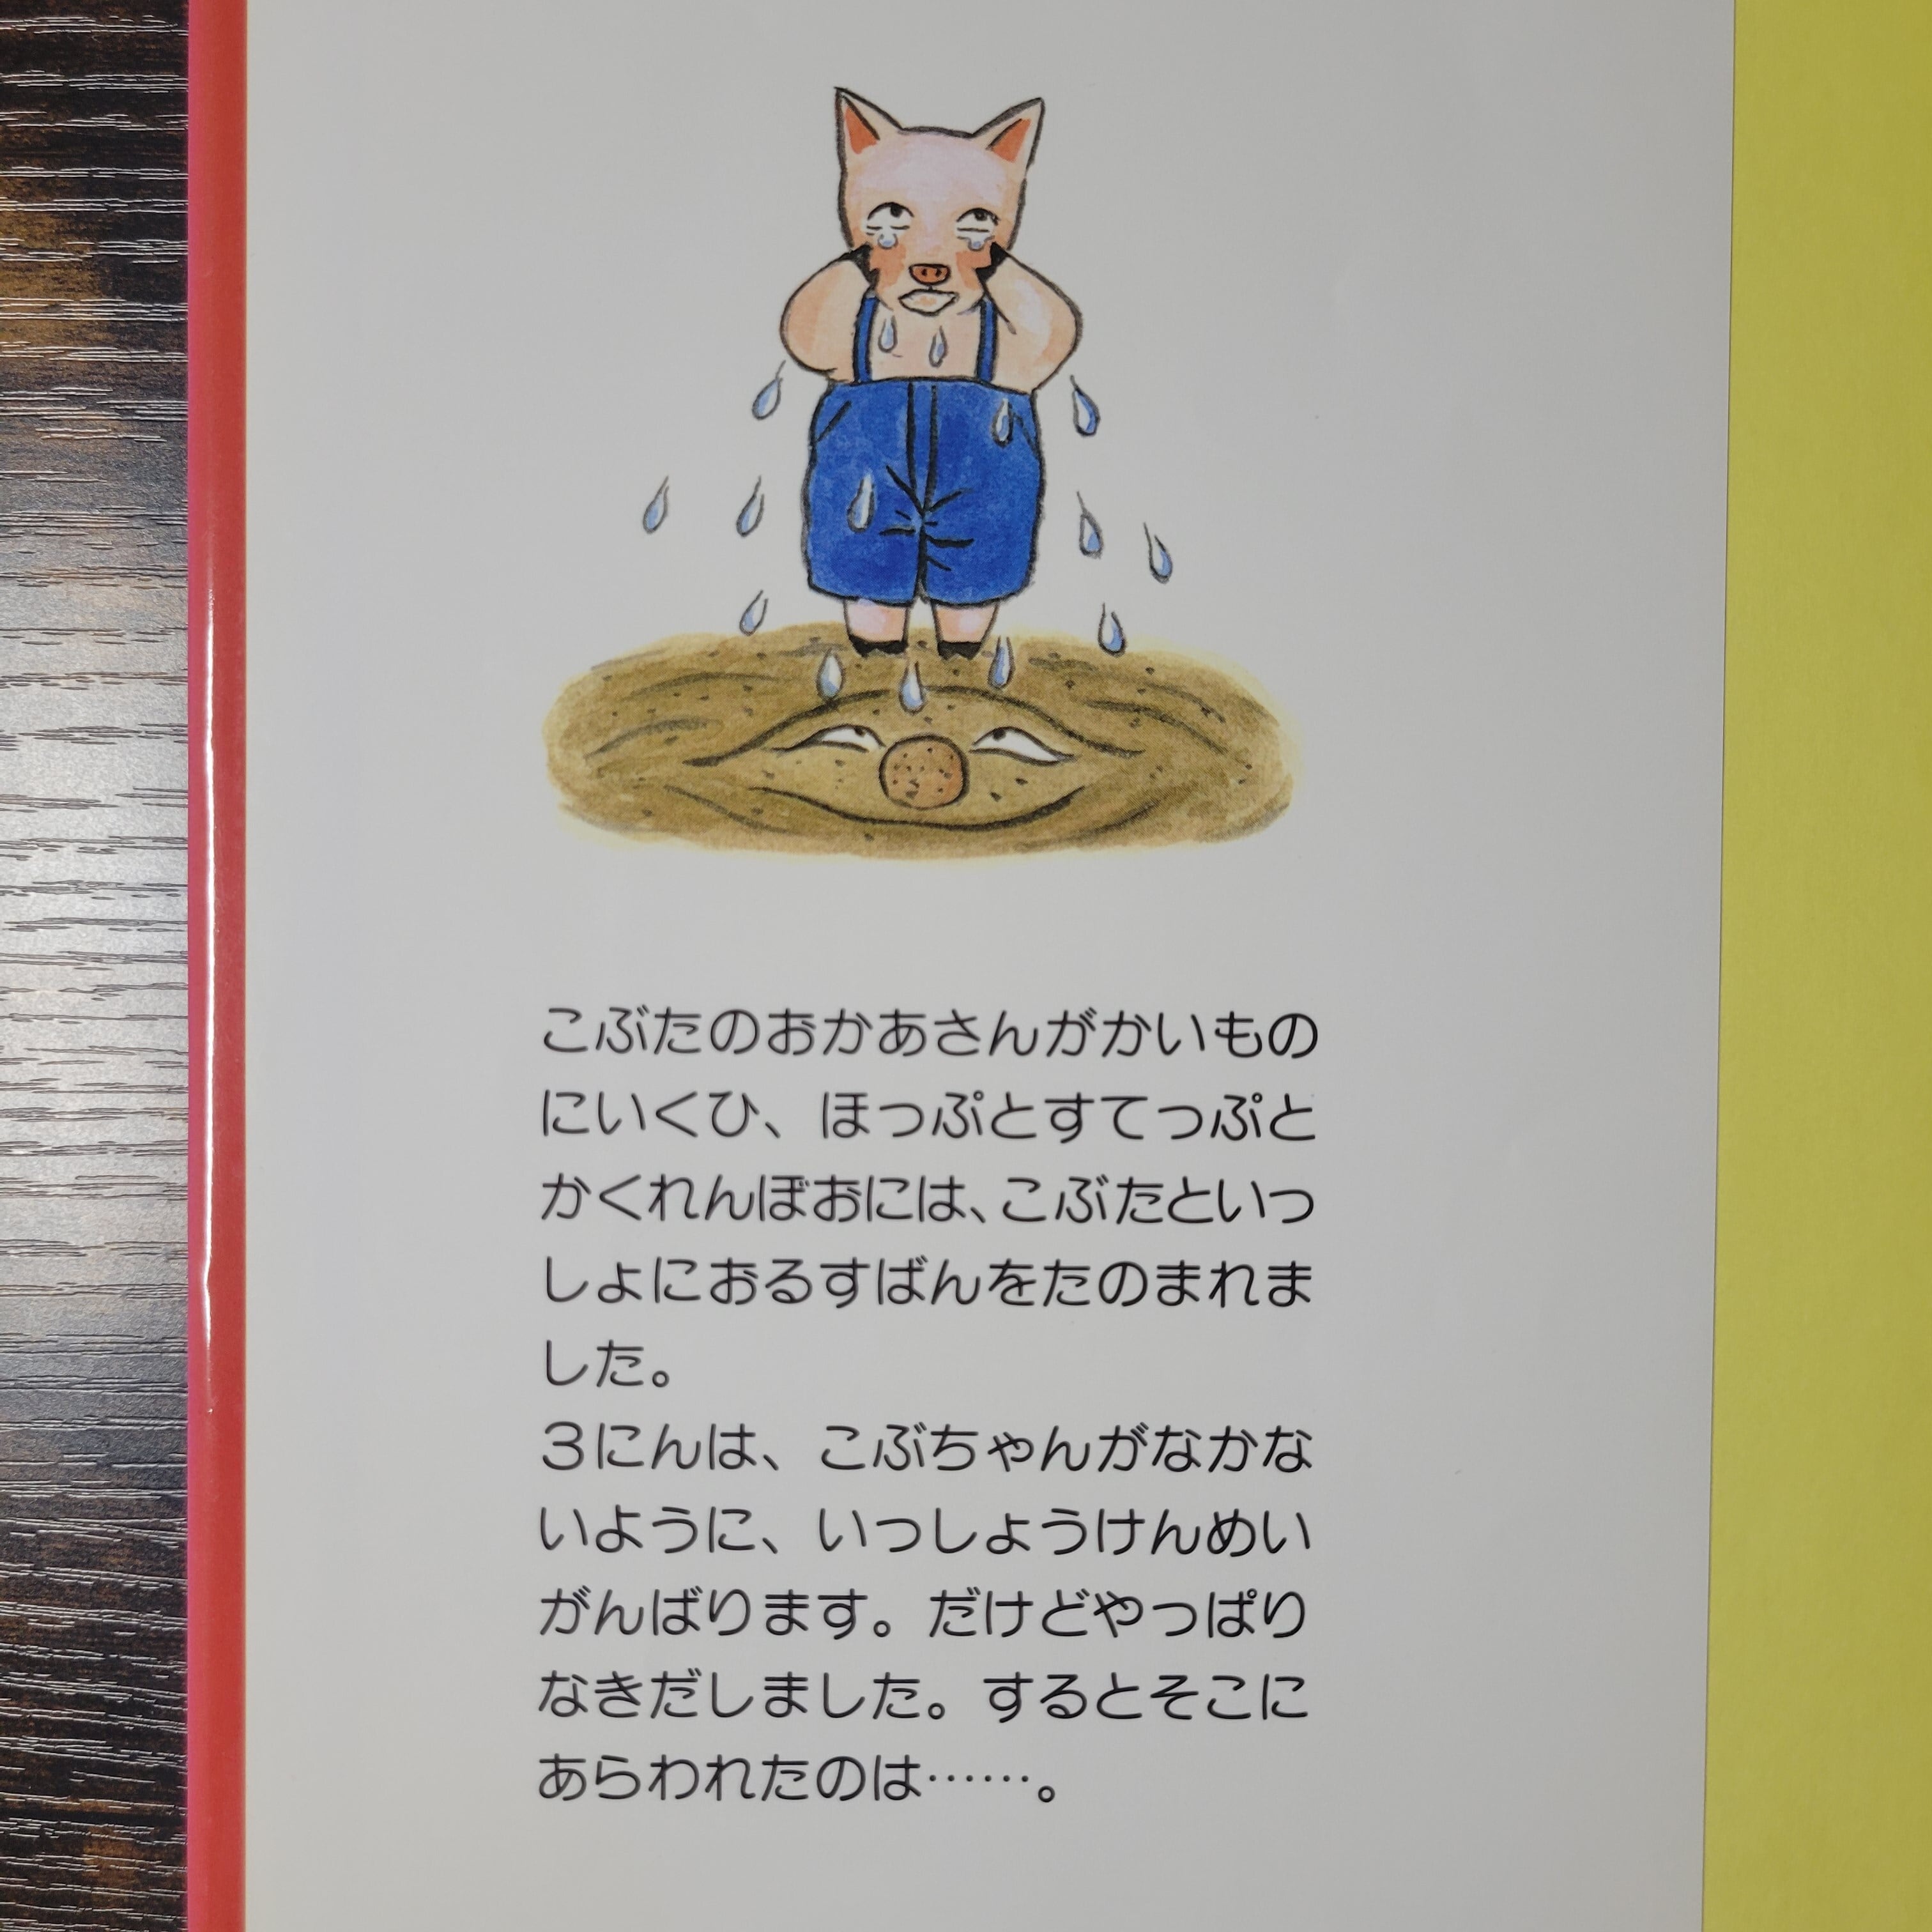 こぶたのおかあさんがかいもの
にいくひ、ほっぷとすてっぷと
かくれんぼおには、こぶたといっ
しょにおるすばんをたのまれま
した。
3にんは、こぶちゃんがなかな
いように、いっしょうけんめい
がんばります。だけどやっぱり
なきだしました。するとそこに
あらわれたのは……。